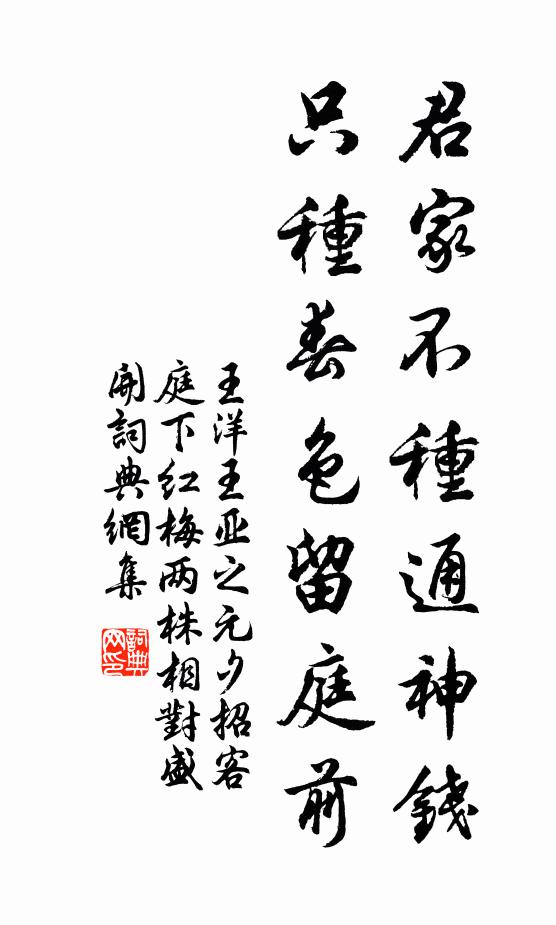 君家不種通神錢
只種春色留庭前
王洋王亚之元夕招客
庭下红梅两株相對盛
開詞典網集
詞典网印